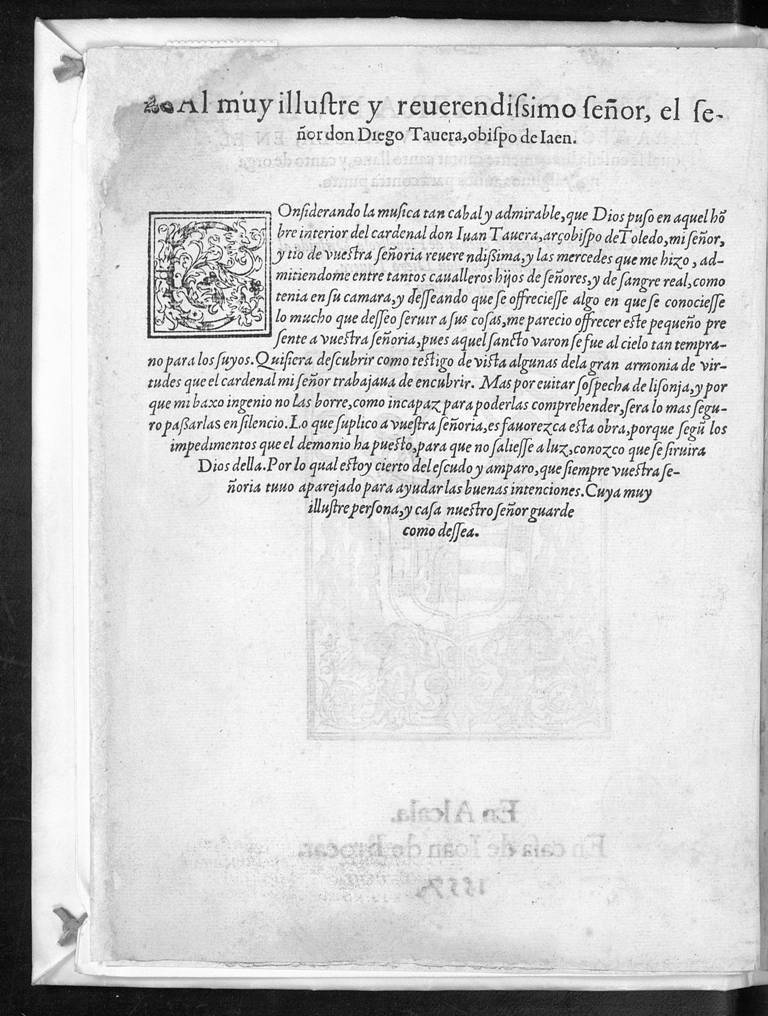 Al muy illustre y reuerendissimo señor, el se-
ñor don Diego Tauera, obispo de Iaen.
COnsiderando la musica tan cabal y admirable, que Dios puso en aquel hõ
bre interior del cardenal don Iuan Tauera, arçobispo de Toledo, mi señor,
y tio de vuestra señoria reuerendißima, y las mercedes que me hizo, ad-
mitiendome entre tantos caualleros hijos de señores, y de sangre real, como
tenia en su camara, y desseando que se offreciesse algo en que se conociesse
lo mucho que desseo seruir a sus cosas, me parecio offrecer este pequeño pre
sente a vuestra señoria, pues aquel sancto varon se fue al cielo tan tempra-
no para los suyos. Quisiera descubrir como testigo de vista algunas dela gran armonia de vir-
tudes que el cardenal mi señor trabajaua de encubrir. Mas por euitar sospecha de lisonja, y por
que mi baxo ingenio no las borre, como incapaz para poderlas comprehender, sera lo mas segu-
ro paßarlas en silencio. Lo que suplico a vuestra señoria, es fauorezca esta obra, porque segũ los
impedimentos que el demonio ha puesto, para que no saliesse a luz, conozco que se siruira
Dios della. Por lo qual estoy cierto del escudo y amparo, que siempre vuestra se-
ñoria tuuo aparejado para ayudar las buenas intenciones. Cuya muy
illustre persona, y casa nuestro señor guarde
como dessea.
En Alcala.
En casa de Ioan de Brocar.
1557.